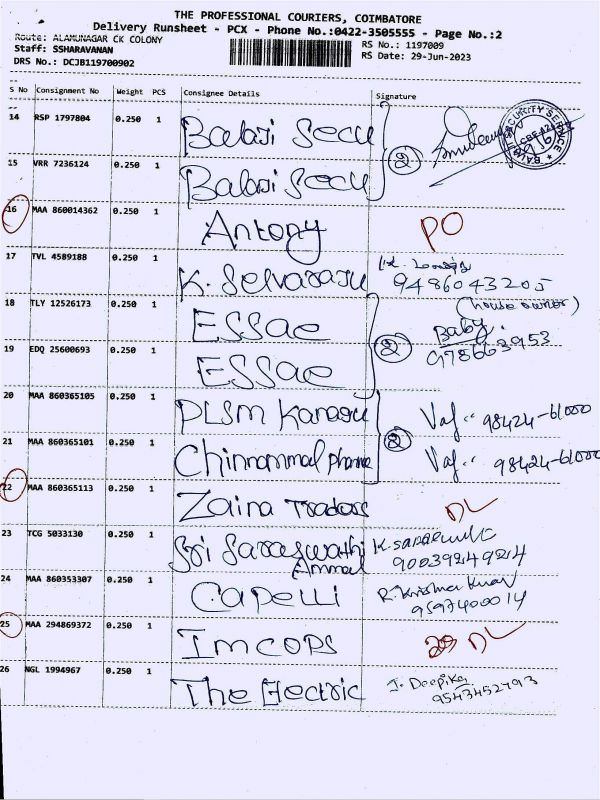 THE PROFESSIONAL COURIERS, COIMBATORE
Delivery Runsheet - PCX - Phone No.:0422-3505555 - Page No.:2
Route: ALAMUNAGAR CK COLONY
RS No.: 1197009
Staff: SSHARAVANAN
RS Date: 29-Jun-2023
DRS No.: DCJB119700902
S No Consignment No Weight PCS Consignee Details Signature
14 RSP 1797804 0.250 1 Balaji Secu
15 VRR 7236124 0.250 1 Balaji Secu 2
16 MAA 860014362 0.250 1 Antony PO
17 TVL 4589188 0.250 1 K. Selvaraju
9486043205
(house owner)
18 TLY 12526173 0.250 1 ESSae Baby
19 EDQ 25600693 0.250 1 ESSae 2 978663953
20 MAA 860365105 0.250 1 PLSM Kanagu 98424-61000
21 MAA 860365101 0.250 1 Chinnammal pharma 2 98424-61000
22 MAA 860365113 0.250 1 Zaina Traders DL
23 TCG 5033130 0.250 1 Sri Saraswathi
Ammal 9003924924
24 MAA 860353307 0.250 1 Capelli R. Krishna Kumar
9597400014
25 MAA 294869372 0.250 1 Imcops DL
26 NGL 1994967 0.250 1 The Electric J. Deepika
9543452793